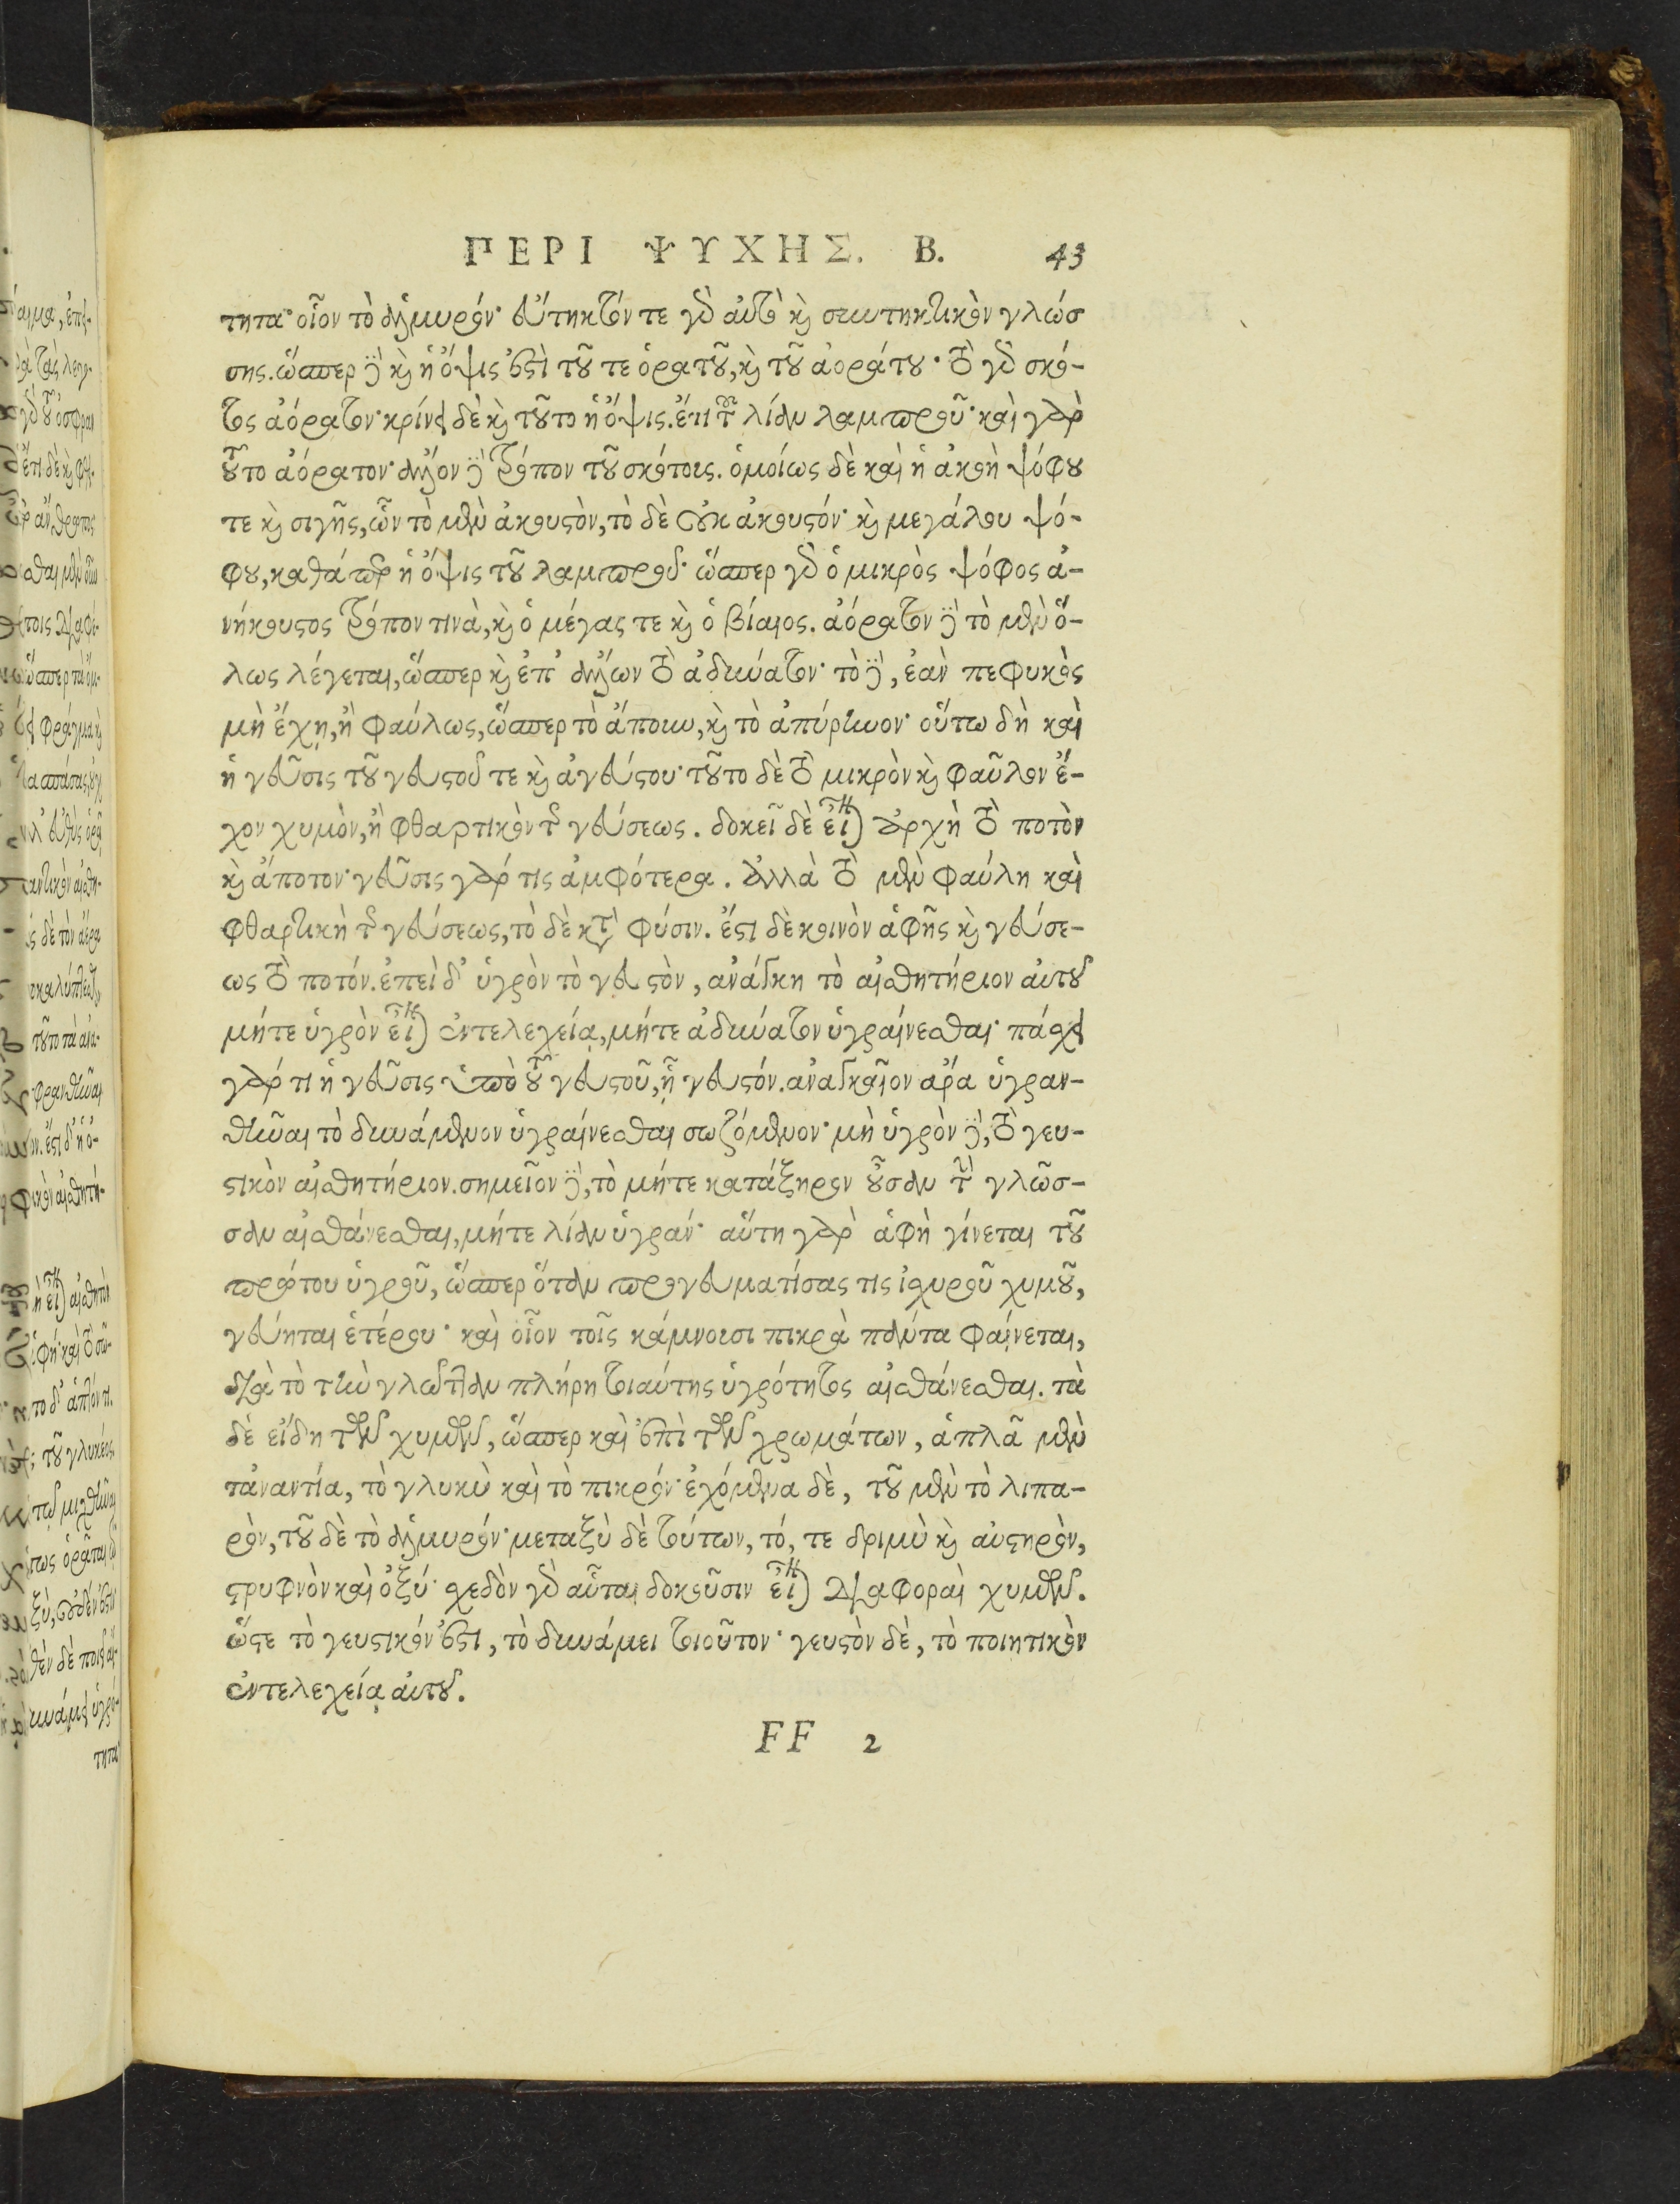 ΠΕΡΙ ΨΥΧΗΣ. Β. 43
τητα· οἷον τὸ ἁλμυρόν· εὔτηκτόν τε γὰρ αὐτὸ καὶ συντηκτικὸν γλώσ
σης. ὥσπερ δὲ καὶ ἡ ὄψις ἐστὶ τοῦ τε ὁρατοῦ, καὶ τοῦ ἀοράτου· τὸ γὰρ σκό-
τος ἀόρατον· κρίνει δὲ καὶ τοῦτο ἡ ὄψις. ἔτι τοῦ λίαν λαμπροῦ· καὶ γὰρ
τοῦτο ἀόρατον· ἄλλον δὲ τρόπον τοῦ σκότους. ὁμοίως δὲ καὶ ἡ ἀκοὴ ψόφου
τε καὶ σιγῆς, ὧν τὸ μὲν ἀκουστὸν, τὸ δὲ οὐκ ἀκουστόν· καὶ μεγάλου ψό-
φου, καθάπερ ἡ ὄψις τοῦ λαμπροῦ· ὥσπερ γὰρ ὁ μικρὸς ψόφος ἀ-
νήκουστος τρόπον τινὰ, καὶ ὁ μέγας τε καὶ ὁ βίαιος. ἀόρατον δὲ τὸ μὲν ὅ-
λως λέγεται, ὥσπερ καὶ ἐπ' ἄλλων τὸ ἀδύνατον· τὸ δὲ, ἐὰν πεφυκὸς
μὴ ἔχῃ, ἢ φαύλως, ὥσπερ τὸ ἄπουν, καὶ τὸ ἀπύρηνον· οὕτω δὴ καὶ
ἡ γεῦσις τοῦ γευστοῦ τε καὶ ἀγεύστου· τοῦτο δὲ τὸ μικρὸν καὶ φαῦλον ἔ-
χον χυμὸν, ἢ φθαρτικὸν τῆς γεύσεως. δοκεῖ δὲ εἶναι ἀρχὴ τὸ ποτὸν
καὶ ἄποτον· γεῦσις γάρ τις ἀμφότερα. ἀλλὰ τὸ μὲν φαύλη καὶ
φθαρτικὴ τῆς γεύσεως, τὸ δὲ κατὰ φύσιν. ἔστι δὲ κοινὸν ἁφῆς καὶ γεύσε-
ως τὸ ποτόν. ἐπεὶ δ' ὑγρὸν τὸ γευστὸν, ἀνάγκη τὸ αἰσθητήριον αὐτοῦ
μήτε ὑγρὸν εἶναι ἐντελεχείᾳ, μήτε ἀδύνατον ὑγραίνεσθαι· πάσχει
γάρ τι ἡ γεῦσις ὑπὸ τοῦ γευστοῦ, ᾗ γευστόν. ἀναγκαῖον ἄρα ὑγραν-
θῆναι τὸ δυνάμενον ὑγραίνεσθαι σωζόμενον· μὴ ὑγρὸν δὲ, τὸ γευ-
στικὸν αἰσθητήριον. σημεῖον δὲ, τὸ μήτε κατάξηρον οὖσαν τὴν γλῶσ-
σαν αἰσθάνεσθαι, μήτε λίαν ὑγράν· αὕτη γὰρ ἁφὴ γίνεται τοῦ
πρώτου ὑγροῦ, ὥσπερ ὅταν προγευματίσας τις ἰσχυροῦ χυμοῦ,
γεύηται ἑτέρου· καὶ οἷον τοῖς κάμνουσι πικρὰ πάντα φαίνεται,
διὰ τὸ τὴν γλῶτταν πλήρη τοιαύτης ὑγρότητος αἰσθάνεσθαι. τὰ
δὲ εἴδη τῶν χυμῶν, ὥσπερ καὶ ἐπὶ τῶν χρωμάτων, ἁπλᾶ μὲν
τἀναντία, τὸ γλυκὺ καὶ τὸ πικρόν· ἐχόμενα δὲ, τοῦ μὲν τὸ λιπα-
ρὸν, τοῦ δὲ τὸ ἁλμυρόν· μεταξὺ δὲ τούτων, τό, τε δριμὺ καὶ αὐστηρὸν,
στρυφνὸν καὶ ὀξύ· σχεδὸν γὰρ αὗται δοκοῦσιν εἶναι διαφοραὶ χυμῶν.
ὥστε τὸ γευστικόν ἐστι, τὸ δυνάμει τοιοῦτον· γευστὸν δὲ, τὸ ποιητικὸν
ἐντελεχείᾳ αὐτοῦ.
FF 2